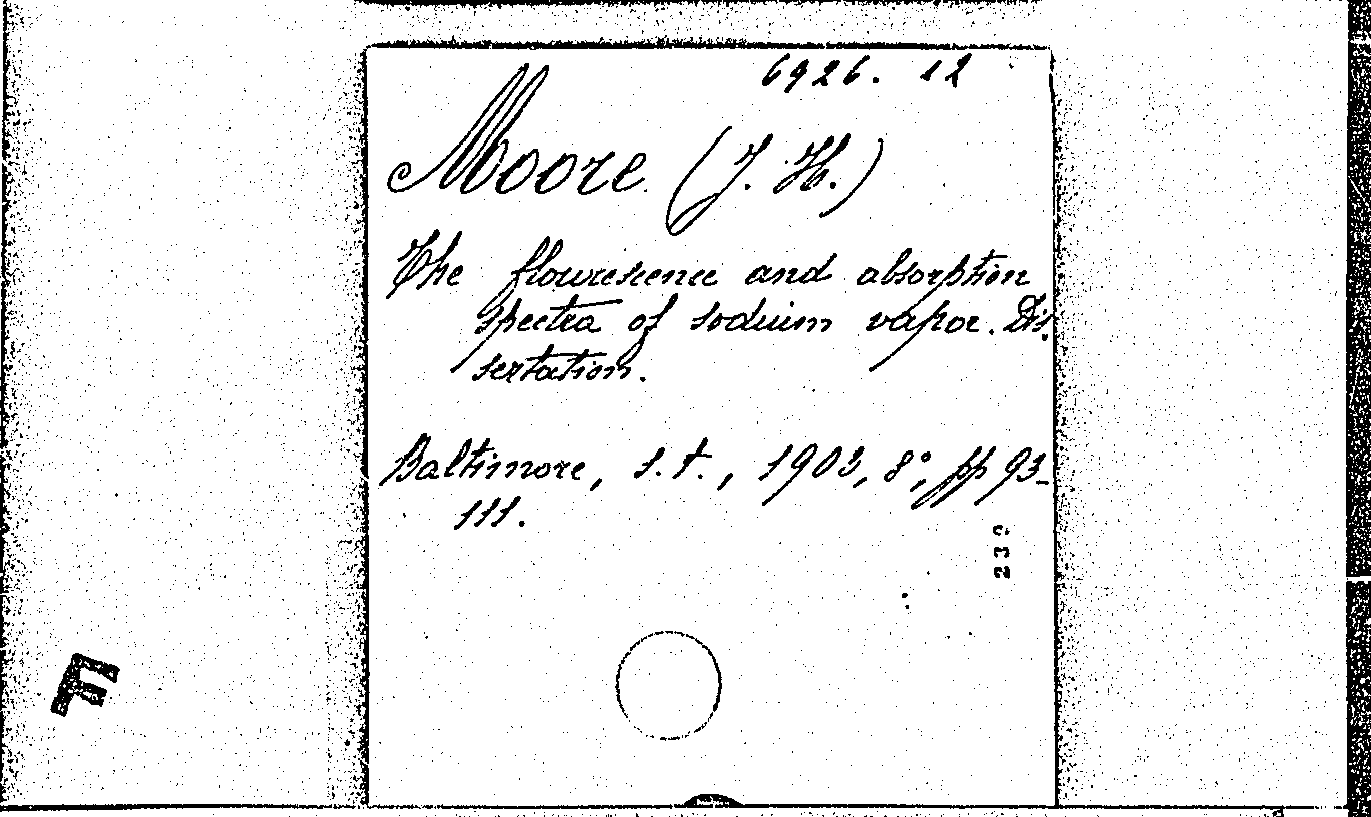 6926. 12
Moore (J. H.)
The flourescence and absorption
spectra of sodium vapor. Dis,
sertation.
Baltimore, s. t., 1903, 8°, pp 93-
111.
F